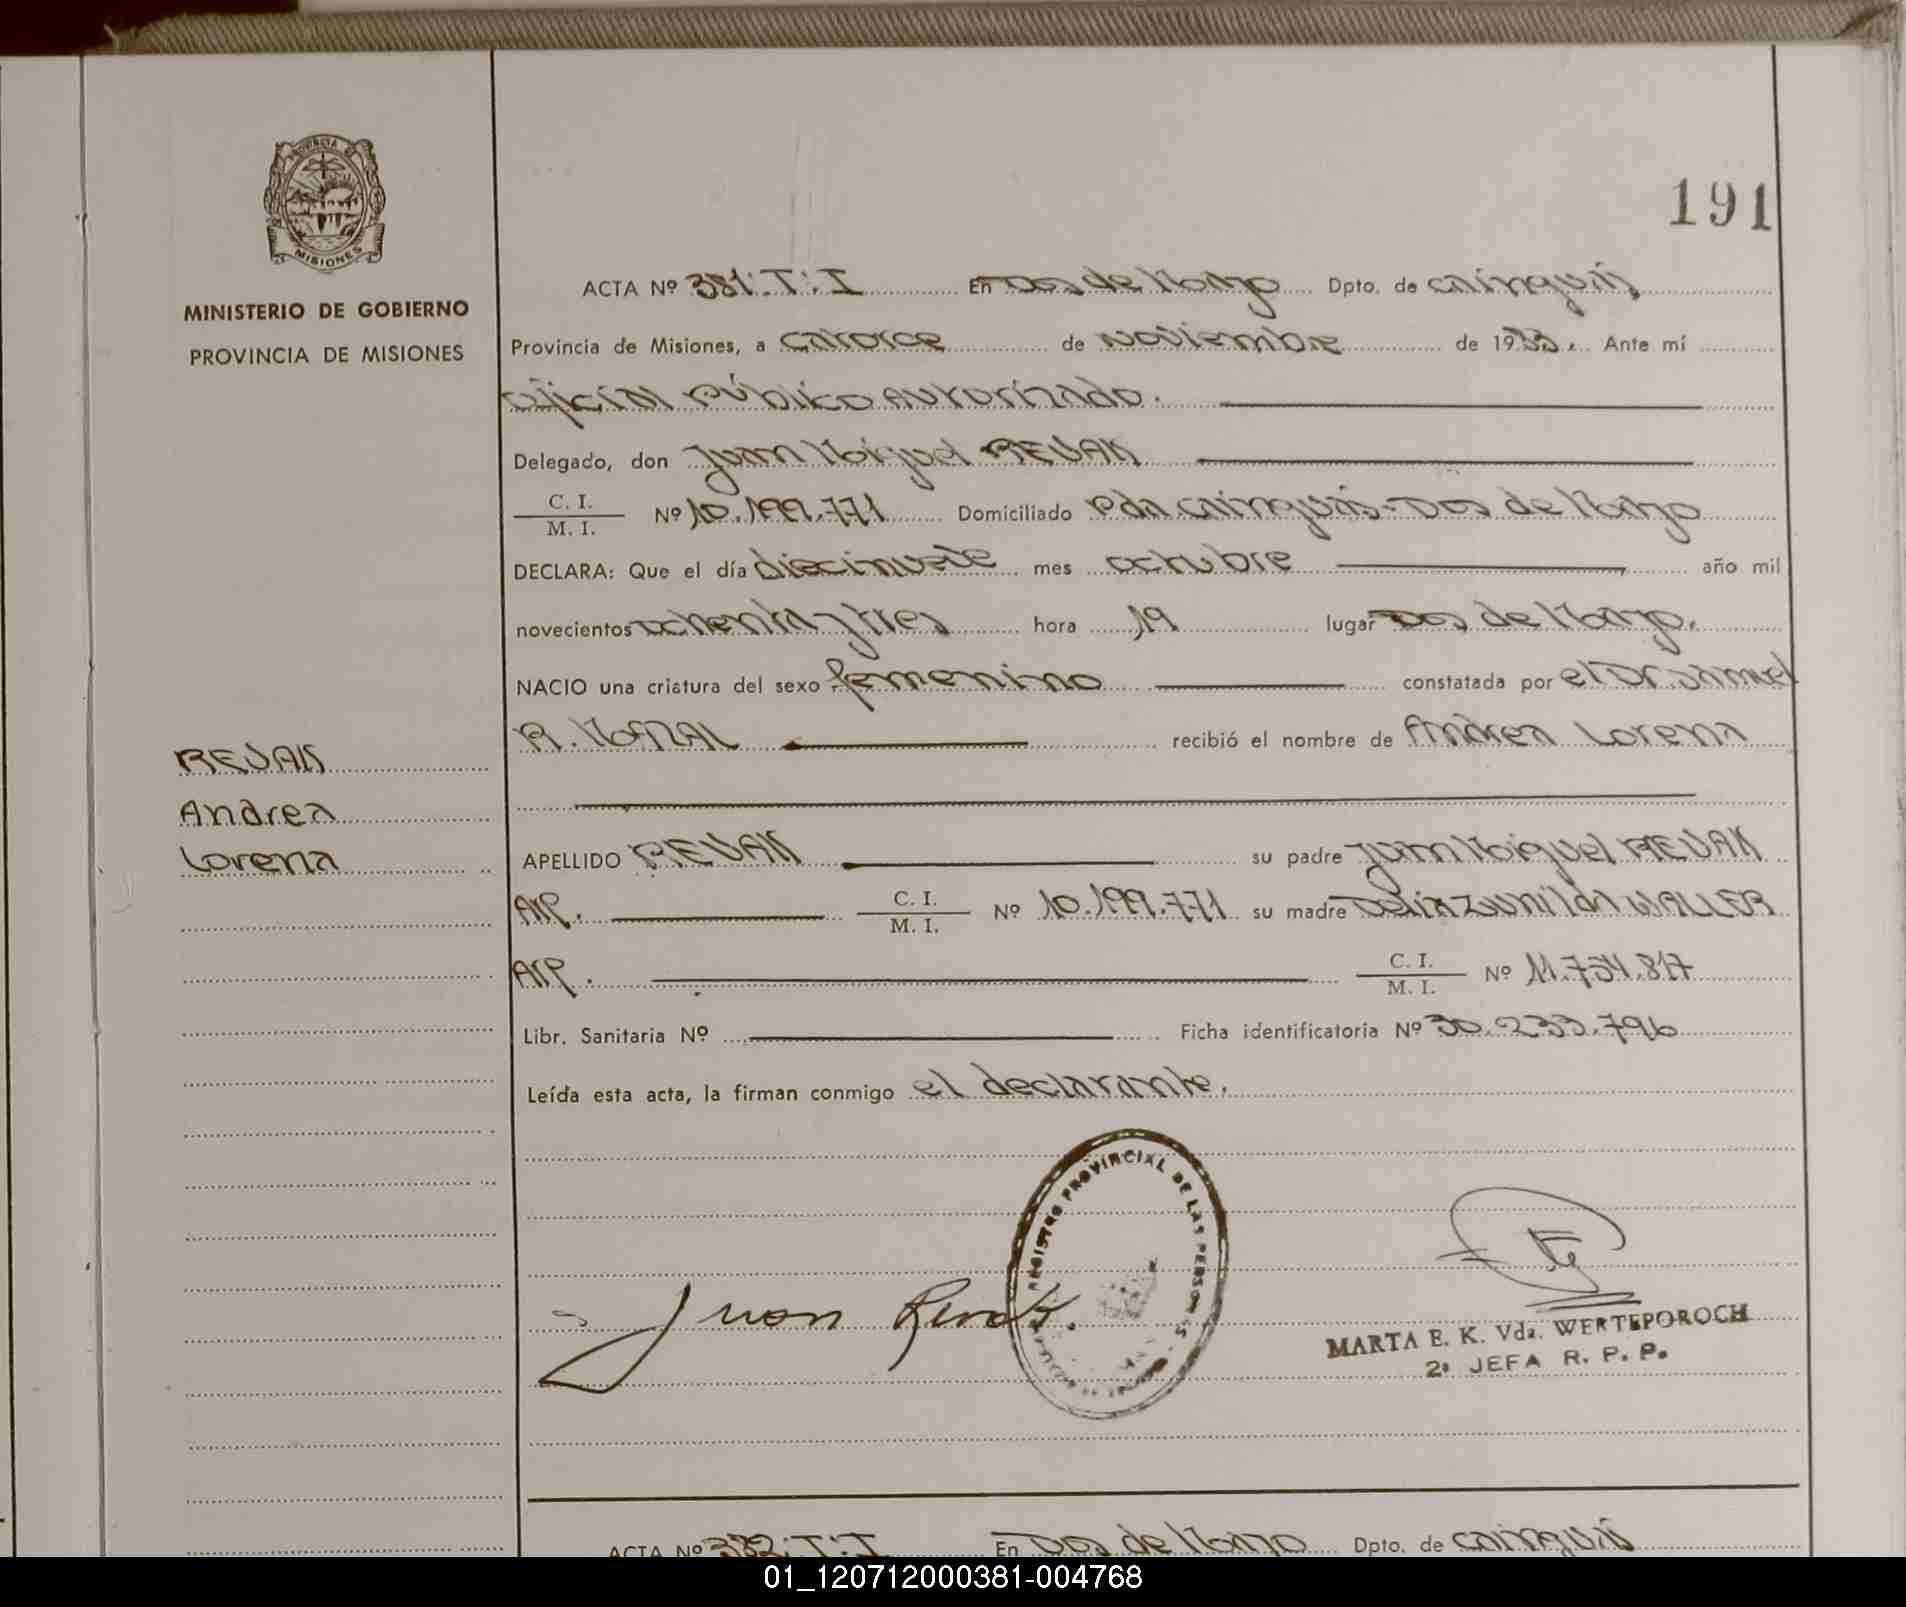 PROVINCIA DE
MISIONES
MINISTERIO DE GOBIERNO
PROVINCIA DE MISIONES
191
ACTA Nº 381·T·I En Dos de Mayo Dpto. de Cainguás
Provincia de Misiones, a catorce de noviembre de 1983. Ante mí
Oficial Público Autorizado.
Delegado, don Juan Miguel REVAK
C. I.
M. I. Nº 10.199.771 Domiciliado Pda Cainguás - Dos de Mayo
DECLARA: Que el día diecinueve mes octubre año mil
novecientos ochenta y tres hora 19 lugar Dos de Mayo.
NACIO una criatura del sexo femenino constatada por el Dr. Samuel
R. MAZAL recibió el nombre de Andrea Lorena
REVAK
Andrea
Lorena
APELLIDO REVAK su padre Juan Miguel REVAK
Arg. C. I.
M. I. Nº 10.199.771 su madre Delia Zunilda WALLER
Arg. C. I.
M. I. Nº 11.754.817
Libr. Sanitaria Nº Ficha identificatoria Nº 30.233.796
Leída esta acta, la firman conmigo el declarante.
REGISTRO PROVINCIAL DE LAS PERSONAS
Juan Revak.
MARTA E. K. Vda. WERTEPOROCH
2ª JEFA R. P. P.
ACTA Nº 382·T·I En Dos de Mayo Dpto. de Cainguás
01_120712000381-004768